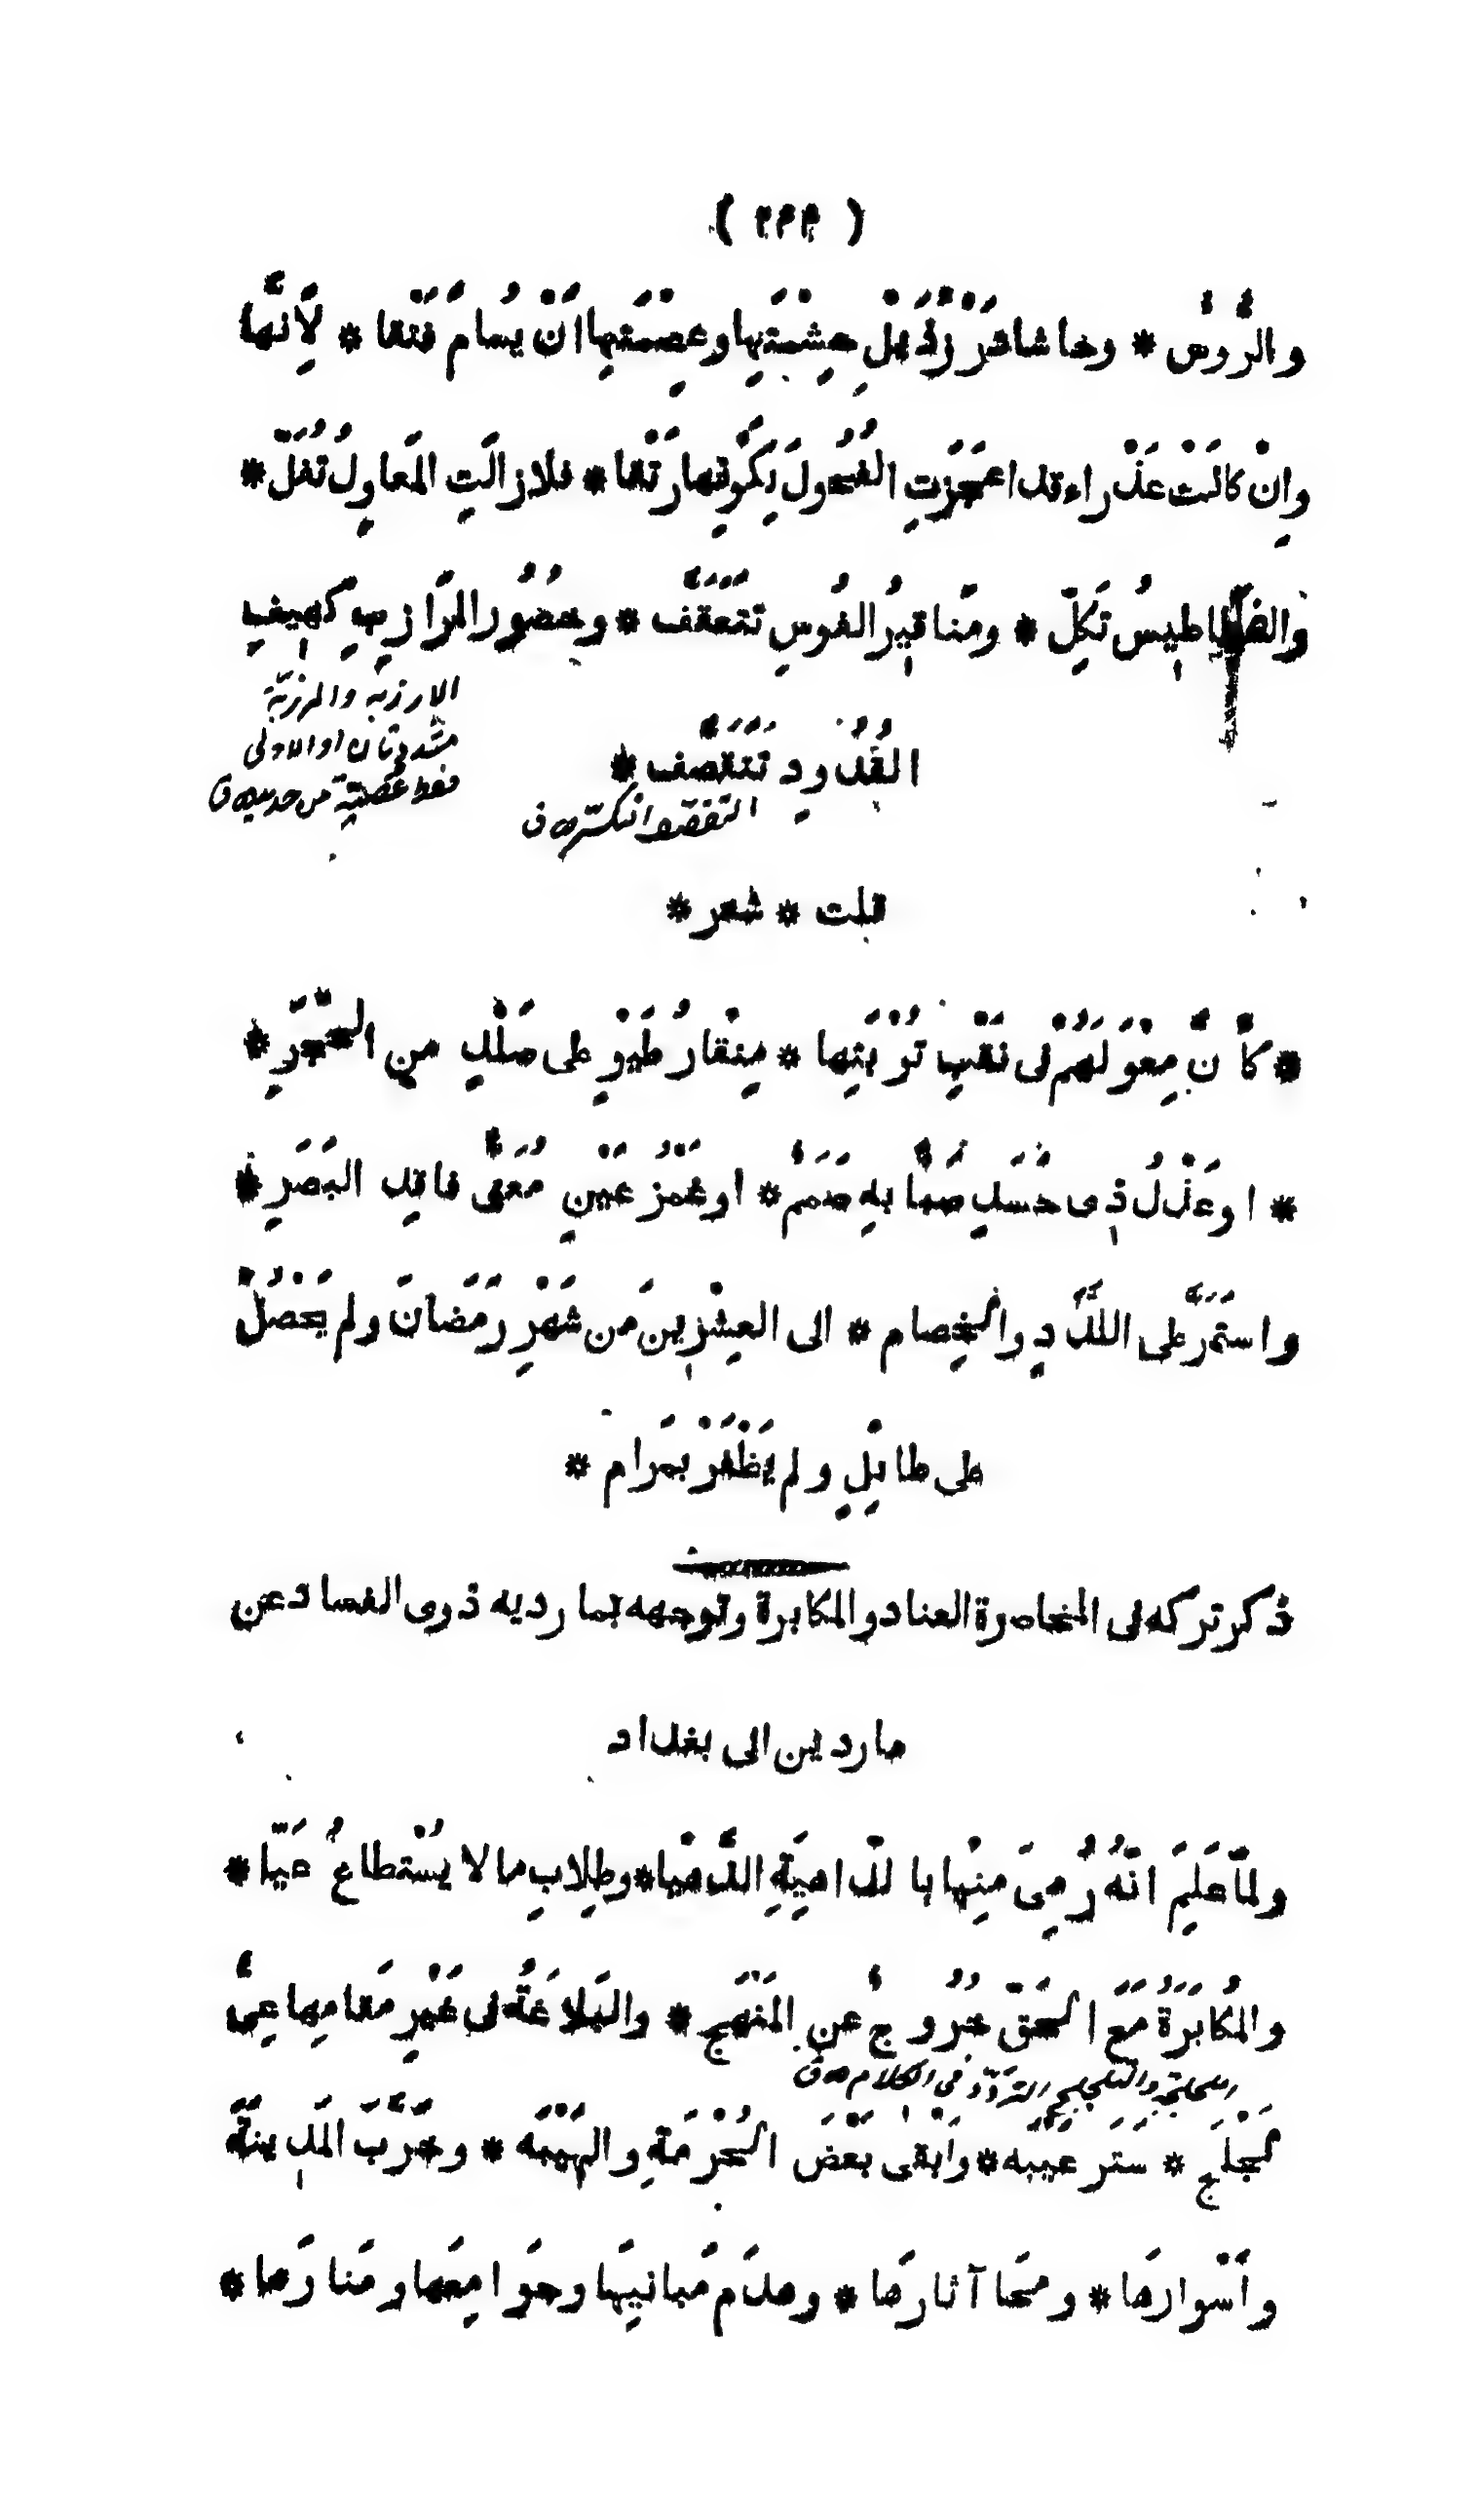 ( ٢٢٢ )
والرُّؤُس * وحاشا قَرَّرْدُ مْلِ حِشْمَتِها وعِصْمَتِها اَنْ يُسامَ فَتَقا * لِاَنَّها
وَاِنْ كانَتْ عَذْراء قد اعجَزَتِ الفُحُولَ بِكَوْنِها رَتْقا * فلا زالَتِ المَعاوِلُ تُفَلّ *
والفَطاطِيسُ تَكِلّ * ومَناقِيرُ الفُوسِ تَتَعَقَّف * وخُصُور المَرازِبِ كَهِيفِ
القُدُودِ تَتَقَصَّف *
الارزبة والمرزبة
مشددتان او الاولى
فقط عصيّة من حديد ق
التقصف انكسره ق
قلت * شعر *
* كَأَنَّ مِعْوَلَهُمْ في نَقْبِ تُرْبَتِها * مِنْقارُ طَيْرٍ على صَلْدٍ من الحَجَرِ *
* او عَذْلُ ذى حَسَدٍ صَبًّا بِهِ صَمَمٌ * او غَمْزُ عَيْنٍ مُعَنًّى فاقِدِ البَصَرِ *
واستَمَرَّ على اللَّدَدِ والخِصام * الى العِشْرِينَ مَن شَهْرِ رَمَضانَ ولم يَحْصُلْ
على طائِلٍ ولم يَظْفَرْ بمَرام *
ذكر تركه فى المخاصرة العناد والمكابرة وتوجهه بمارديه ذوى الفساد عن
ماردين الى بغداد
ولمّا عَلِمَ انَّهُ رُمِىَ مِنْها بالدّاهِيَةِ الدَّهْيا * وطِلابِ ما لا يُسْتطاعُ عَيّا *
والمُكابَرَةُ مَعَ الحَقّ خُرُوجٌ عنِ المَنْهَج * والبَلاغَةُ فى غَيْرِ مَقامِها عِىٌّ
والتلجلج التردد في الكلام ق
لَجْلَج * سَتَر عَيْبَه * وَاَبْقى بَعْضَ الحُرْمَةِ والهَيْبَه * وخَرَّبَ المَدِينَةَ
واَسْوارَها * ومَحا آثارَها * وهدَم مَبانِيَها وجَوامِعَها ومَنارَها *